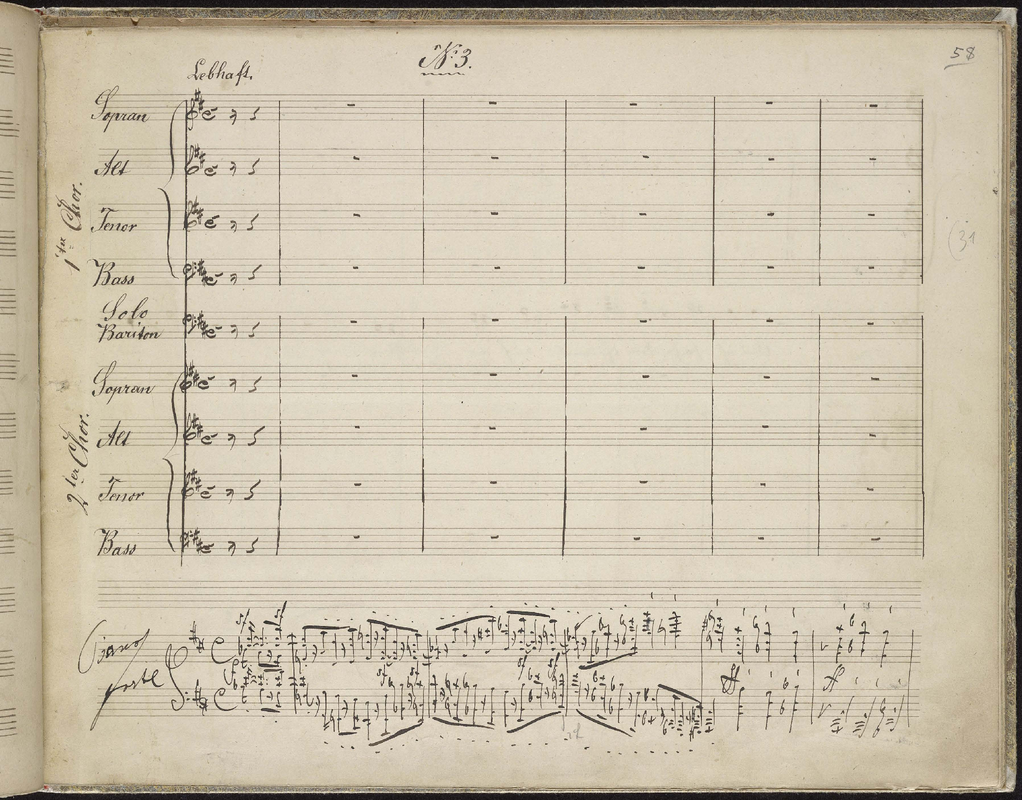 No. 3.
58
Lebhaft.
Sopran
Alt
Tenor
Bass
1ter Chor.
(31
Solo
Bariton
Sopran
Alt
Tenor
Bass
2ter Chor.
Piano
forte